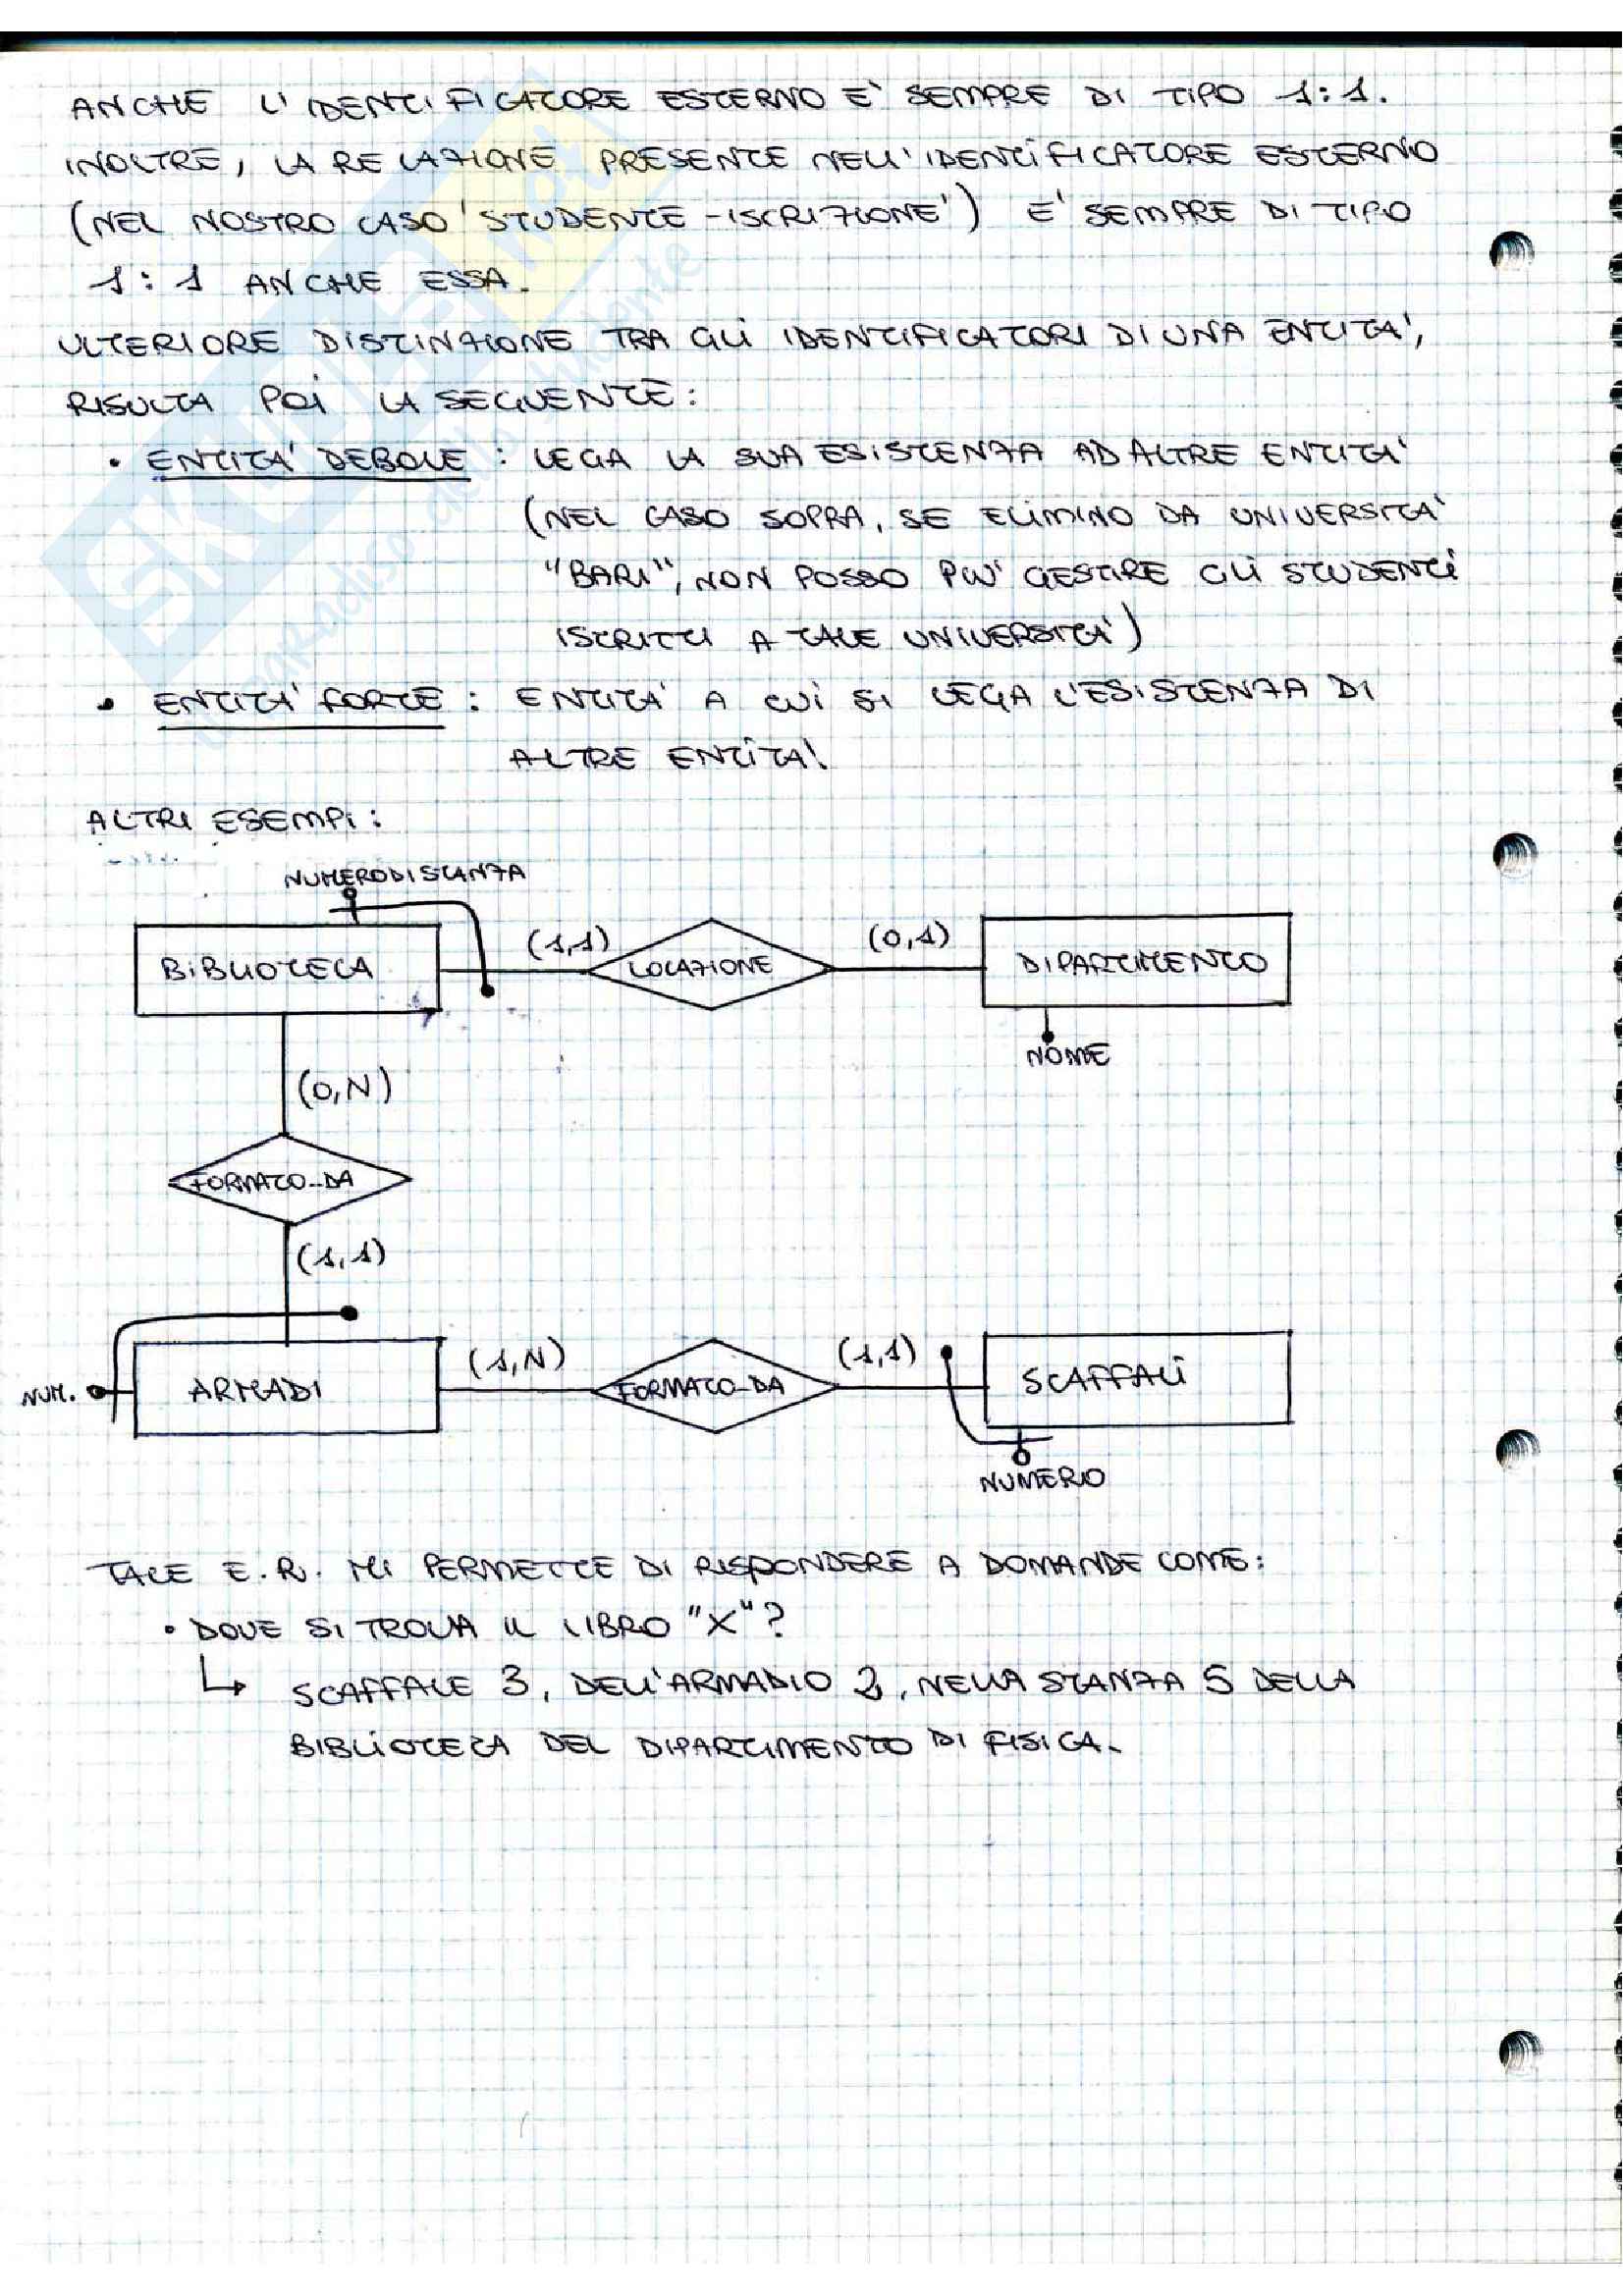 ANCHE L'IDENTIFICATORE ESTERNO E' SEMPRE DI TIPO 1:1.
INOLTRE, LA RELAZIONE PRESENTE NELL'IDENTIFICATORE ESTERNO
(NEL NOSTRO CASO 'STUDENTE-ISCRIZIONE') E' SEMPRE DI TIPO
1:1 ANCHE ESSA.
ULTERIORE DISTINZIONE TRA GLI IDENTIFICATORI DI UNA ENTITA',
RISULTA POI LA SEGUENTE:
• ENTITA' DEBOLE : LEGA LA SUA ESISTENZA AD ALTRE ENTITA'
(NEL CASO SOPRA, SE ELIMINO DA UNIVERSITA'
"BARI", NON POSSO PIU' GESTIRE GLI STUDENTI
ISCRITTI A TALE UNIVERSITA')
• ENTITA' FORTE : ENTITA' A CUI SI LEGA L'ESISTENZA DI
ALTRE ENTITA'.
ALTRI ESEMPI:
NUMERODISTANZA
BIBLIOTECA (1,1) LOCAZIONE (0,1) DIPARTIMENTO
NOME
(0,N)
FORMATO_DA
(1,1)
NUM. ARMADI (1,N) FORMATO_DA (1,1) SCAFFALI
NUMERO
TALE E.R. MI PERMETTE DI RISPONDERE A DOMANDE COME:
• DOVE SI TROVA IL LIBRO "X"?
↳ SCAFFALE 3, DELL'ARMADIO 2, NELLA STANZA 5 DELLA
BIBLIOTECA DEL DIPARTIMENTO DI FISICA.
SKUOLA.net
il paradiso dello studente